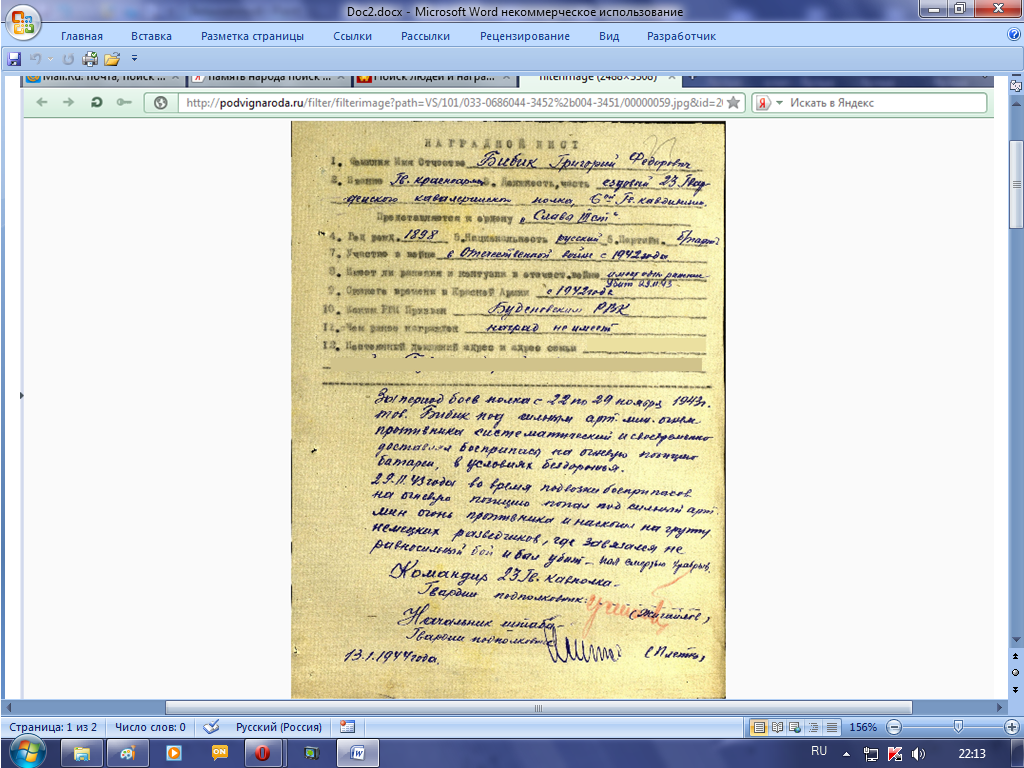 Doc2.docx - Microsoft Word некоммерческое использование
Главная Вставка Разметка страницы Ссылки Рассылки Рецензирование Вид Разработчик
Mail.Ru: почта, поиск ... память народа поиск ... Поиск людей и награ... filterimage (2488×3508)
http://podvignaroda.ru/filter/filterimage?path=VS/101/033-0686044-3452%2b004-3451/00000059.jpg&id=2 Искать в Яндекс
НАГРАДНОЙ ЛИСТ
1. Фамилия Имя Отчество Бибик Григорий Федорович
2. Звание Гв. красноарм. 3. Должность, часть ездовой 23 Гвар
дейского кавалерийского полка, 6ой Гв. кавдивизии.
Представляется к ордену "Слава IIIст"
4. Год рожд. 1898 5. Национальность русский 6. Партийн. б/парт
7. Участие в войне в Отечественной войне с 1942 года
8. Имеет ли ранения и контузии в отечест. войне имеет одно ранение
Убит 29.11.43
9. Служба в Красной Армии с 1942 года
10. Каким РВК Призван Буденовским РВК
11. Чем ранее награжден наград не имеет
12. Постоянный домашний адрес и адрес семьи
За период боев полка с 22 по 29 ноября 1943г.
тов. Бибик под сильным арт. мин. огнем
противника систематический и своевременно
доставлял боеприпасы на огневую позицию
батареи, в условиях бездорожья.
29.11.43 годы во время подвозки боеприпасов
на огневую позицию попал под сильный арт.
мин огонь противника и наскочил на группу
немецких разведчиков, где завязался не
равносильный бой и был убит - пал смертью храбрых.
Командир 23 Гв. кавполка -
Гвардии подполковник:
Начальник штаба -
Гвардии подполковник
13.1.1944 года.
Страница: 1 из 2 Число слов: 0 Русский (Россия) 156%
ON RU 22:13